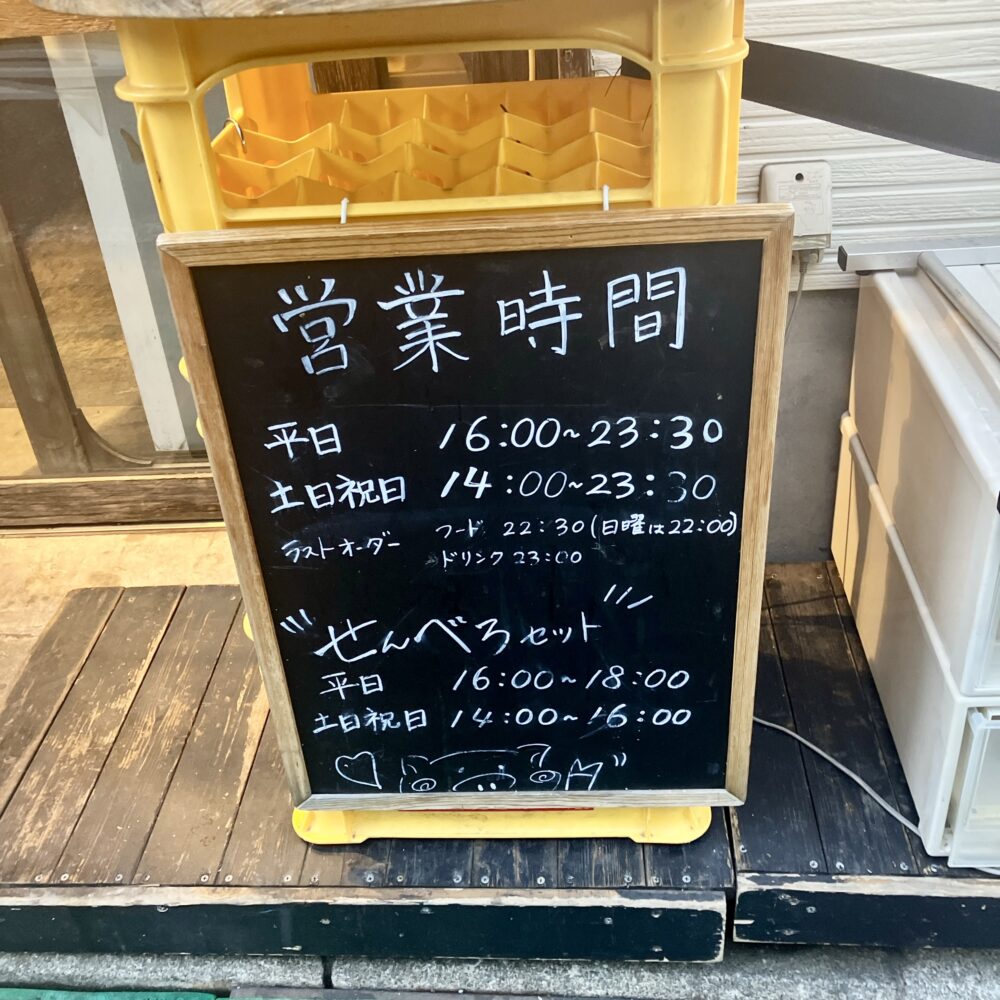 営業時間
平日 16:00~23:30
土日祝日 14:00~23:30
ラストオーダー フード 22:30(日曜は22:00)
ドリンク 23:00
せんべろセット
平日 16:00~18:00
土日祝日 14:00~16:00